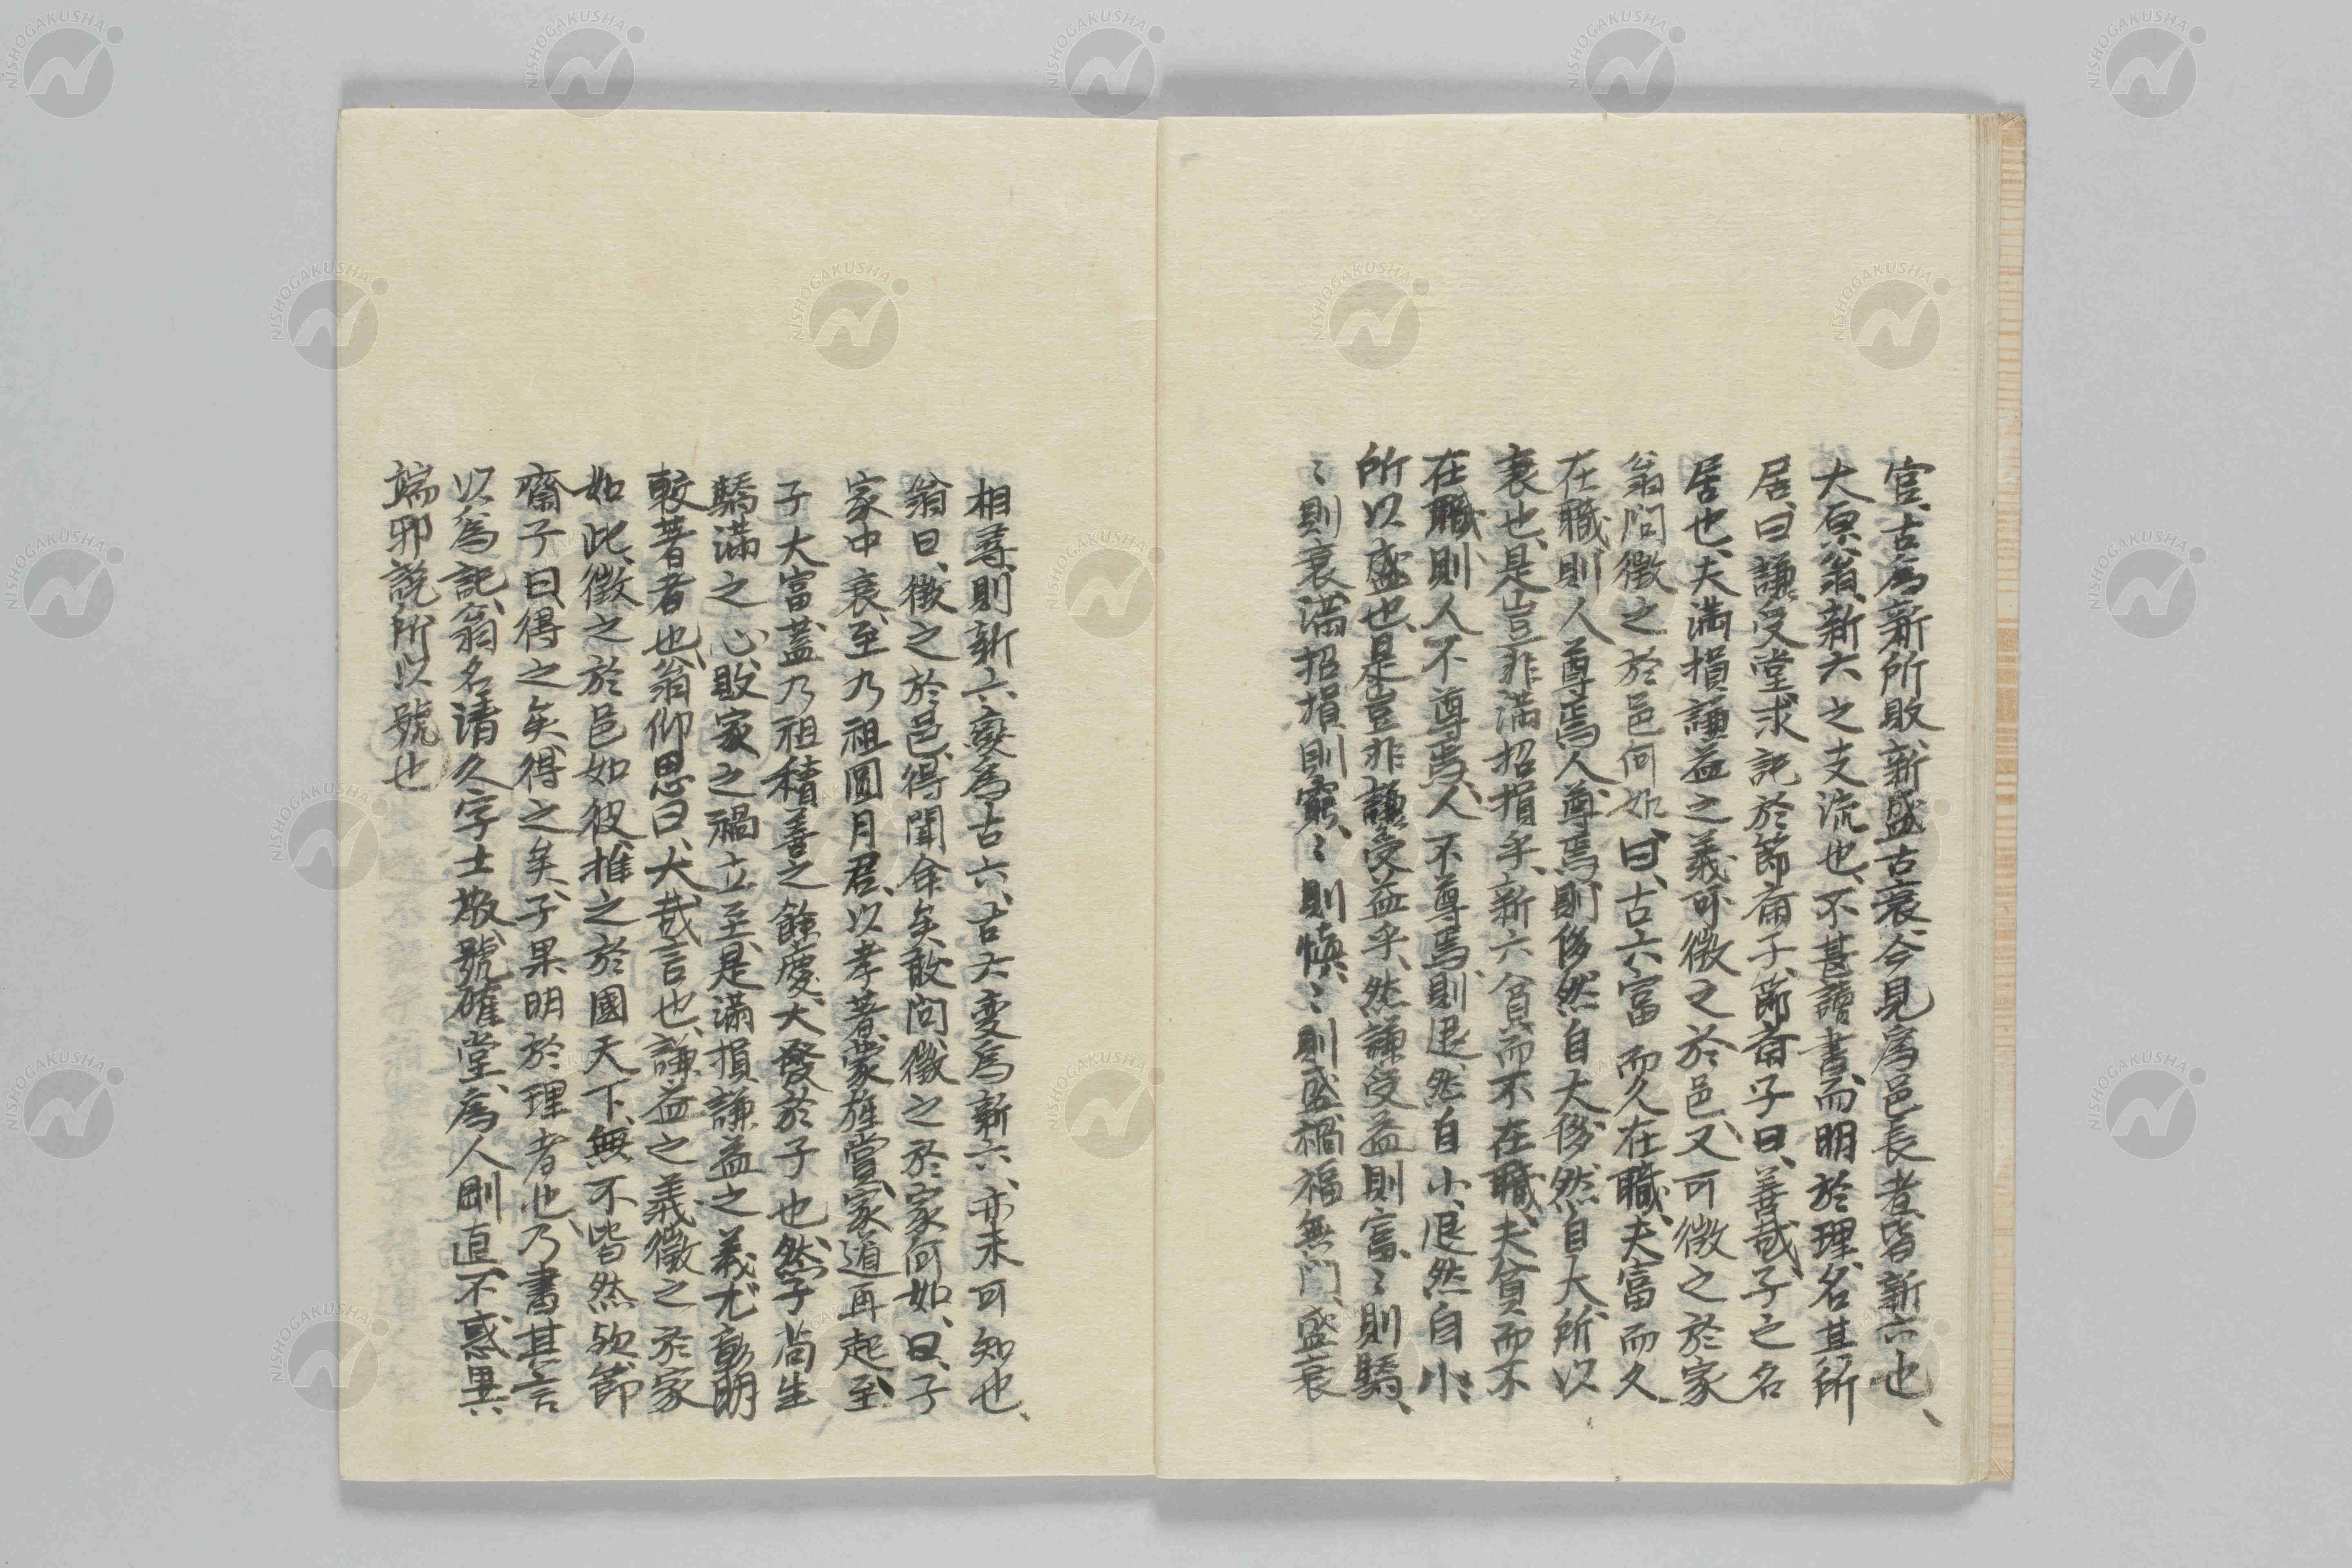 官、古為新所敗、新盛古衰、今見為邑長者、皆新六也、
大原翁、新六之支流也、不甚讀書、而明於理、名其所
居、曰謙受堂、求記於節齋子、節齋子曰、善哉、子之名
居也、夫滿損謙益之義、可徵之於邑、又可徵之於家
翁問徵之於邑何如、曰、古六富而久在職、夫富而久
在職、則人尊焉、人尊焉、則侈然自大、侈然自大、所以
衰也、是豈非滿招損乎、新六貧而不在職、夫貧而不
在職、則人不尊焉、人不尊焉、則退然自小、退然自小、
所以盛也、是豈非謙受益乎、然謙受益則富、〻則驕、
〻則衰、滿招損、則窮、〻則慎、〻則盛、禍福無門、盛衰
相尋、則新六變為古六、古六变為新六、亦未可知也、
翁曰、徵之於邑、得聞命矣、敢問、徵之於家何如、曰、子
家中衰、至乃祖圓月君、以孝著、蒙旌賞、家道再起、至
子大富、蓋乃祖積善之餘慶、大發於子也、然子苟生
驕滿之心、敗家之禍立至、是滿損謙益之義、尤彰明
較著者也、翁仰思曰、大哉言也、謙益之義、徵之於家
如此、徵之於邑如彼、推之於國天下、無不皆然歟、節
齋子曰、得之矣、得之矣、子果明於理者也、乃書其言
以為記、翁名請久、字士敬、號確堂、為人剛直、不惑異
端邪說、所以號也